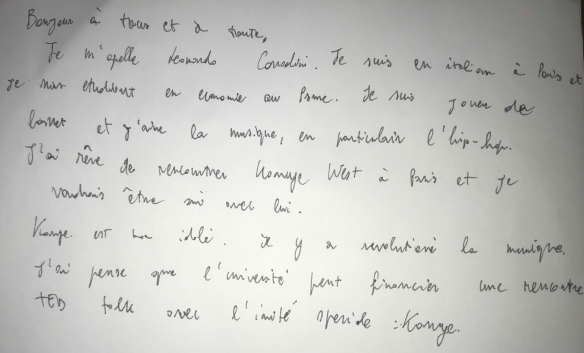 Bonjour à tous et à toute,
Je m'apelle Leonardo Corradini. Je suis en italian à Paris et
je suis etudient en economie au Rome. Je suis jouer de
basket et j'aime la musique, en particulair l'hip-hop.
J'ai rêve de rencontrer Kanye West à Paris et je
voudrais être ami avec lui.
Kanye est mon idolé. Il y a revolutioné la musique.
J'ai pense que l'université peut financier une rencontre
TED talk avec l'invité speciale : Kanye.